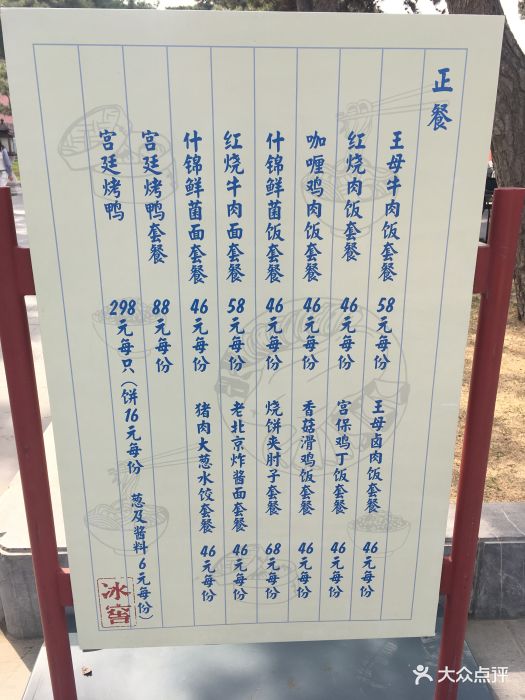 正餐
王母牛肉饭套餐 58元每份
王母卤肉饭套餐 46元每份
红烧肉饭套餐 46元每份
宫保鸡丁饭套餐 46元每份
咖喱鸡肉饭套餐 46元每份
香菇滑鸡饭套餐 46元每份
什锦鲜菌饭套餐 46元每份
烧饼夹肘子套餐 68元每份
红烧牛肉面套餐 58元每份
老北京炸酱面套餐 46元每份
什锦鲜菌面套餐 46元每份
猪肉大葱水饺套餐 46元每份
宫廷烤鸭套餐 88元每份
宫廷烤鸭 298元每只(饼16元每份 葱及酱料6元每份)
冰窖
大众点评